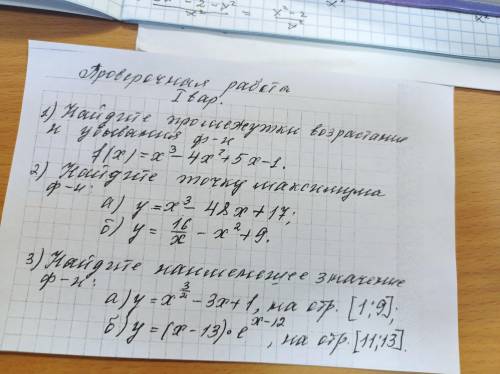 x²-2
x²
Проверочная работа
I вар.
1) Найдите промежутки возрастания
и убывания ф-и
f(x)=x³-4x²+5x-1.
2) Найдите точку максимума
ф-и:
а) y=x³-48x+17;
б) y=16/x-x²+9.
3) Найдите наименьшее значение
ф-и:
а) y=x^(3/2)-3x+1, на отр. [1;9];
б) y=(x-13)·e^(x-12), на отр. [11;13].